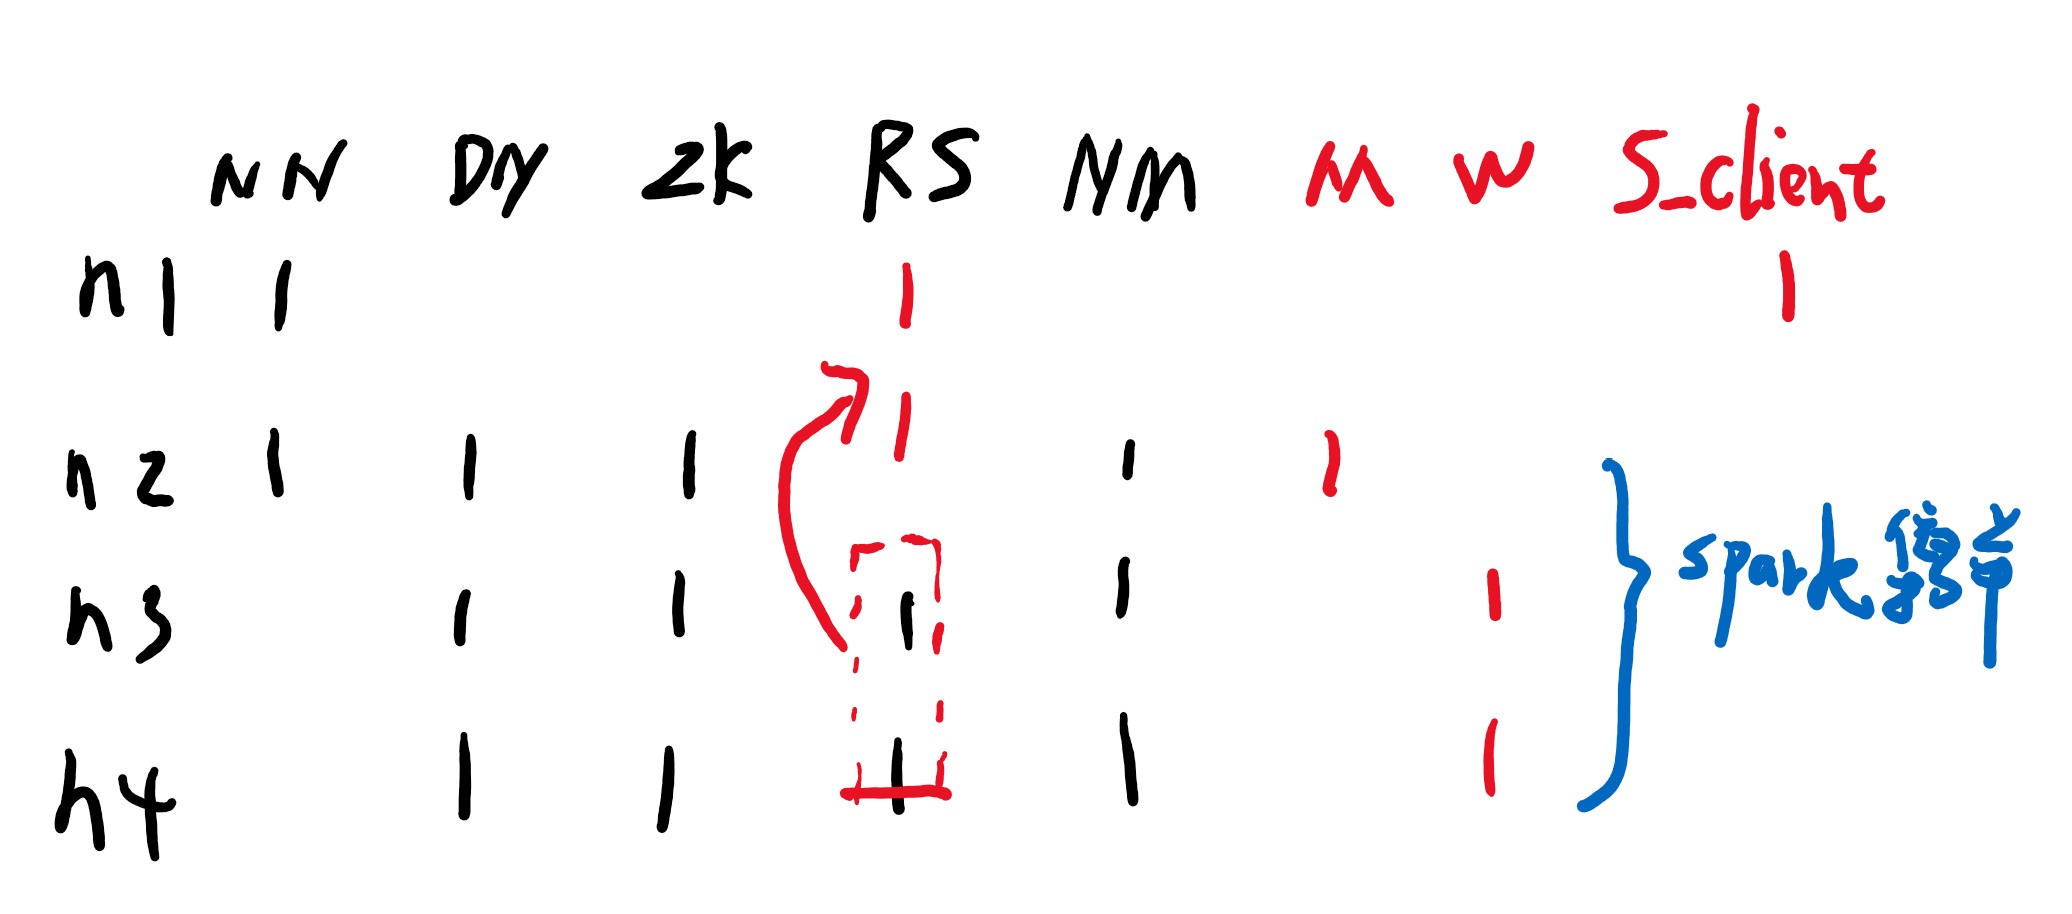 NN DN ZK RS NM M W S_client
n1 1 1 1
n2 1 1 1 1 1 1
n3 1 1 1 1 1
n4 1 1 1 1 1
spark